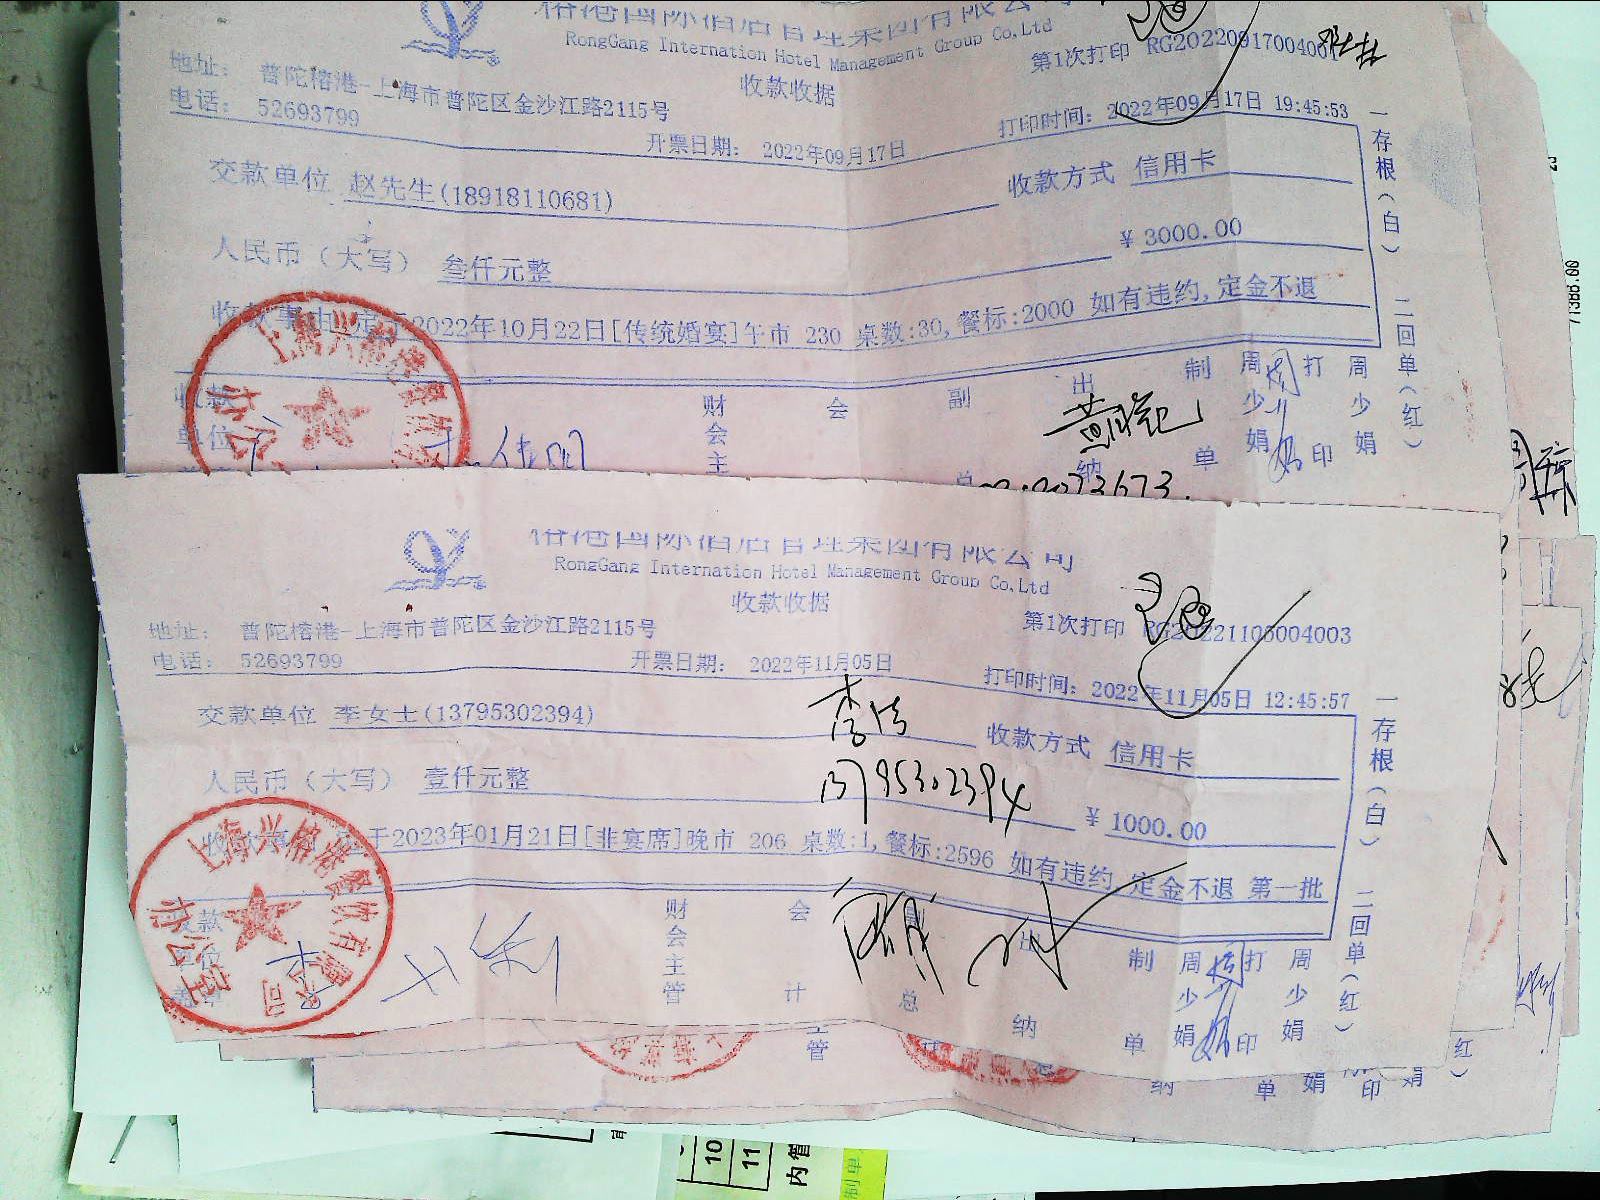 榕港国际酒店管理集团有限公司
RongGang Internation Hotel Management Group Co,Ltd
收款收据
第1次打印
地址： 普陀榕港-上海市普陀区金沙江路2115号
电话： 52693799
开票日期： 2022年09月17日
打印时间： 2022年09月17日 19:45:53
交款单位 赵先生(18918110681)
收款方式 信用卡
人民币（大写） 叁仟元整
¥ 3000.00
收款事由 定于2022年10月22日[传统婚宴]午市 230 桌数:30,餐标:2000 如有违约,定金不退
收款 单位
财会主
会
副总
出纳
制单
周少娟
打印
周少娟
一存根(白) 二回单(红)
上海兴榕港餐饮有
办公
榕港国际酒店管理集团有限公司
RongGang Internation Hotel Management Group Co,Ltd
收款收据
第1次打印 RG20221105004003
地址： 普陀榕港-上海市普陀区金沙江路2115号
电话： 52693799
开票日期： 2022年11月05日
打印时间： 2022年11月05日 12:45:57
交款单位 李女士(13795302394)
收款方式 信用卡
13795302394
人民币（大写） 壹仟元整
¥ 1000.00
于2023年01月21日[非宴席]晚市 206 桌数:1,餐标:2596 如有违约,定金不退 第一批
收款
财会主管
会计
总
出纳
制单
周少娟
打印
周少娟
一存根(白) 二回单(红)
上海兴榕港餐饮有限公司
办公室
管
纳
单
娟
印
娟
红
10
11
内管
制单